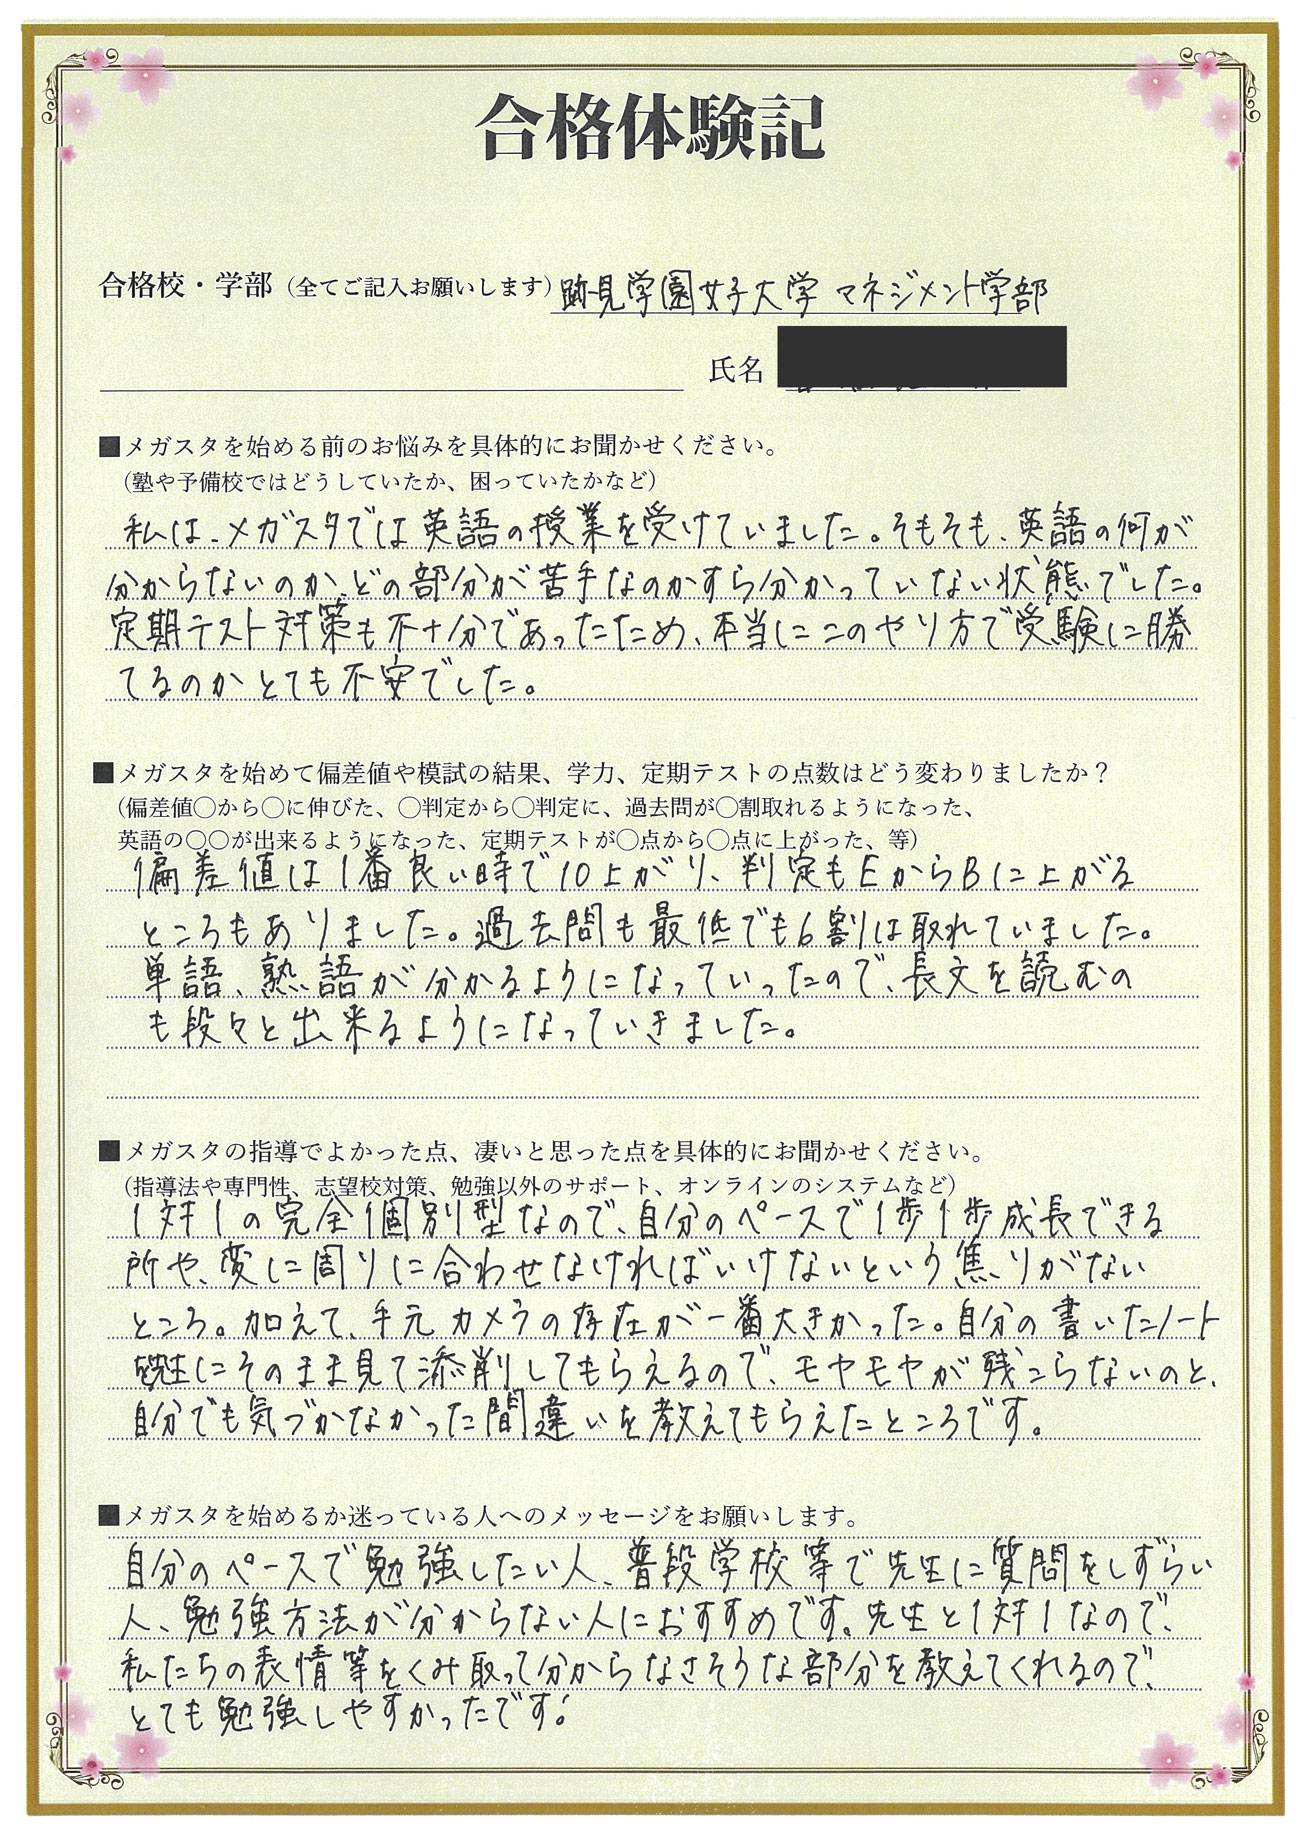 合格体験記
合格校・学部（全てご記入お願いします）跡見学園女子大学 マネジメント学部
氏名
■メガスタを始める前のお悩みを具体的にお聞かせください。
（塾や予備校ではどうしていたか、困っていたかなど）
私は、メガスタでは英語の授業を受けていました。そもそも、英語の何が
分からないのか、どの部分が苦手なのかすら分かっていない状態でした。
定期テスト対策も不十分であったため、本当にこのやり方で受験に勝
てるのかとても不安でした。
■メガスタを始めて偏差値や模試の結果、学力、定期テストの点数はどう変わりましたか？
（偏差値〇から〇に伸びた、〇判定から〇判定に、過去問が〇割取れるようになった、
英語の〇〇が出来るようになった、定期テストが〇点から〇点に上がった、等）
偏差値は1番良い時で10上がり、判定もEからBに上がる
ところもありました。過去問も最低でも6割は取れていました。
単語、熟語が分かるようになっていったので、長文を読むの
も段々と出来るようになっていきました。
■メガスタの指導でよかった点、凄いと思った点を具体的にお聞かせください。
（指導法や専門性、志望校対策、勉強以外のサポート、オンラインのシステムなど）
1対1の完全個別型なので、自分のペースで1歩1歩成長できる
所や、変に周りに合わせなければいけないという焦りがない
ところ。加えて、手元カメラの存在が一番大きかった。自分の書いたノート
を先生にそのまま見て添削してもらえるので、モヤモヤが残こらないのと、
自分でも気づかなかった間違いを教えてもらえたところです。
■メガスタを始めるか迷っている人へのメッセージをお願いします。
自分のペースで勉強したい人、普段学校等で先生に質問をしずらい
人、勉強方法が分からない人におすすめです。先生と1対1なので、
私たちの表情等をくみ取って分からなさそうな部分を教えてくれるので、
とても勉強しやすかったです！